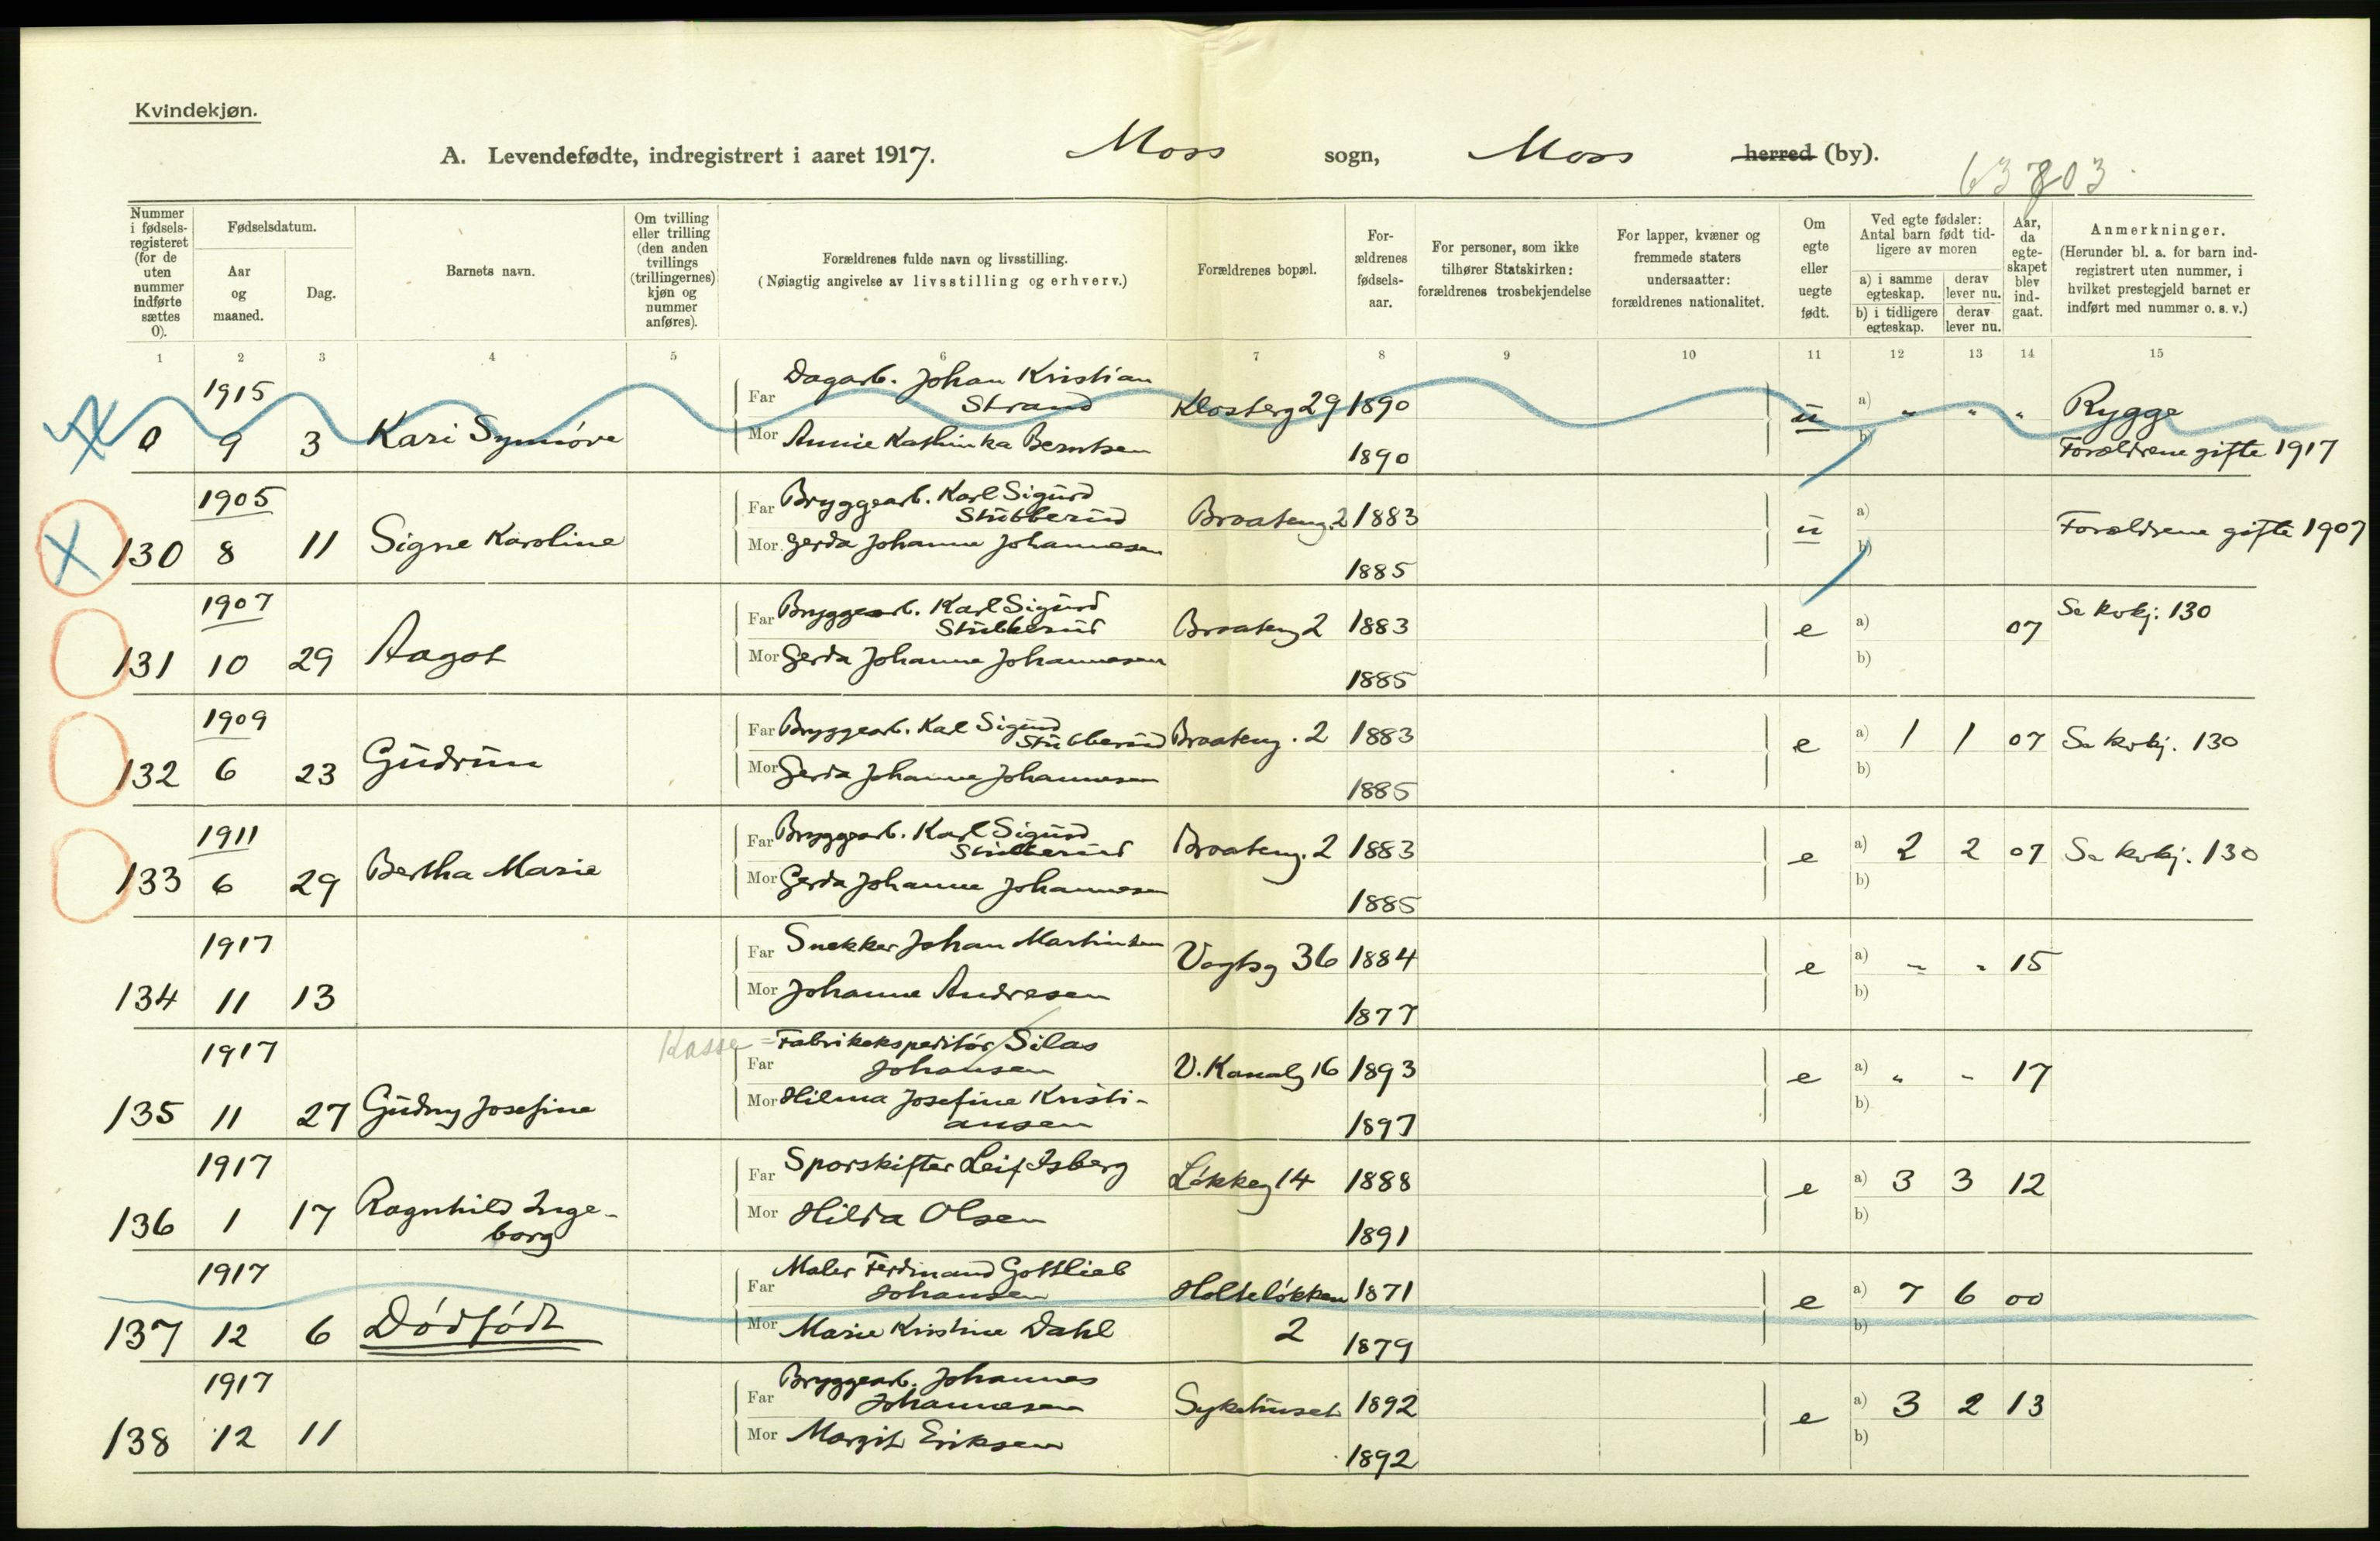 Kvindekjøn.
A. Levendefødte, indregistrert i aaret 1917. Moss sogn, Moss herred (by).
63803
Nummer i fødsels-registeret (for de uten nummer indførte sættes 0).
Fødselsdatum.
Aar og maaned.
Dag.
Barnets navn.
Om tvilling eller trilling (den anden tvillings (trillingernes) kjøn og nummer anføres).
Forældrenes fulde navn og livsstilling.
(Nøiagtig angivelse av livsstilling og erhverv.)
Forældrenes bopæl.
For-ældrenes fødsels-aar.
For personer, som ikke tilhører Statskirken: forældrenes trosbekjendelse
For lapper, kvæner og fremmede staters undersaatter: forældrenes nationalitet.
Om egte eller uegte født.
Ved egte fødsler: Antal barn født tid-ligere av moren
a) i samme egteskap.
derav lever nu.
b) i tidligere egteskap.
derav lever nu.
Aar, da egte-skapet blev ind-gaat.
Anmerkninger.
(Herunder bl. a. for barn ind-registrert uten nummer, i hvilket prestegjeld barnet er indført med nummer o. s. v.)
1 2 3 4 5 6 7 8 9 10 11 12 13 14 15
1915
0 9 3 Kari Synnøve
Far Dagarb. Johan Kristian
Strand Klosterg 29 1890 u a) " " " Rygge
Mor Annie Kathinka Berntsen 1890 b) Forældrene gifte 1917
1905
130 8 11 Signe Karoline
Far Bryggearb. Karl Sigurd
Stubberud Braateng. 2 1883 u a) Forældrene gifte 1907
Mor Gerda Johanne Johannesen 1885 b)
1907
131 10 29 Aagot
Far Bryggearb. Karl Sigurd
Stubberud Braateng 2 1883 e a) 07 Se kvkj. 130
Mor Gerda Johanne Johannesen 1885 b)
1909
132 6 23 Gudrun
Far Bryggearb. Karl Sigurd
Stubberud Braateng. 2 1883 e a) 1 1 07 Se kvkj. 130
Mor Gerda Johanne Johannesen 1885 b)
1911
133 6 29 Bertha Marie
Far Bryggearb. Karl Sigurd
Stubberud Braateng. 2 1883 e a) 2 2 07 Se kvkj. 130
Mor Gerda Johanne Johannesen 1885 b)
1917
134 11 13
Far Snekker Johan Martinsen Vogtsg 36 1884 e a) " " 15
Mor Johanne Andresen 1877 b)
1917
135 11 27 Gudny Josefine
Kasse = Fabrikekspeditör Silas
Far Johansen V. Kanalg 16 1893 e a) " " 17
Mor Hilma Josefine Kristi-
ansen 1897 b)
1917
136 1 17 Ragnhild Inge-
borg
Far Sporskifter Leif Isberg Løkkeg 14 1888 e a) 3 3 12
Mor Hilda Olsen 1891 b)
1917
137 12 6 Dødfødt
Far Maler Ferdinand Gottlieb
Johansen Holteløkken 1871 e a) 7 6 00
Mor Marie Kristine Dahl 2 1879 b)
1917
138 12 11
Far Bryggearb. Johannes
Johannesen Sykehuset 1892 e a) 3 2 13
Mor Margit Eriksen 1892 b)